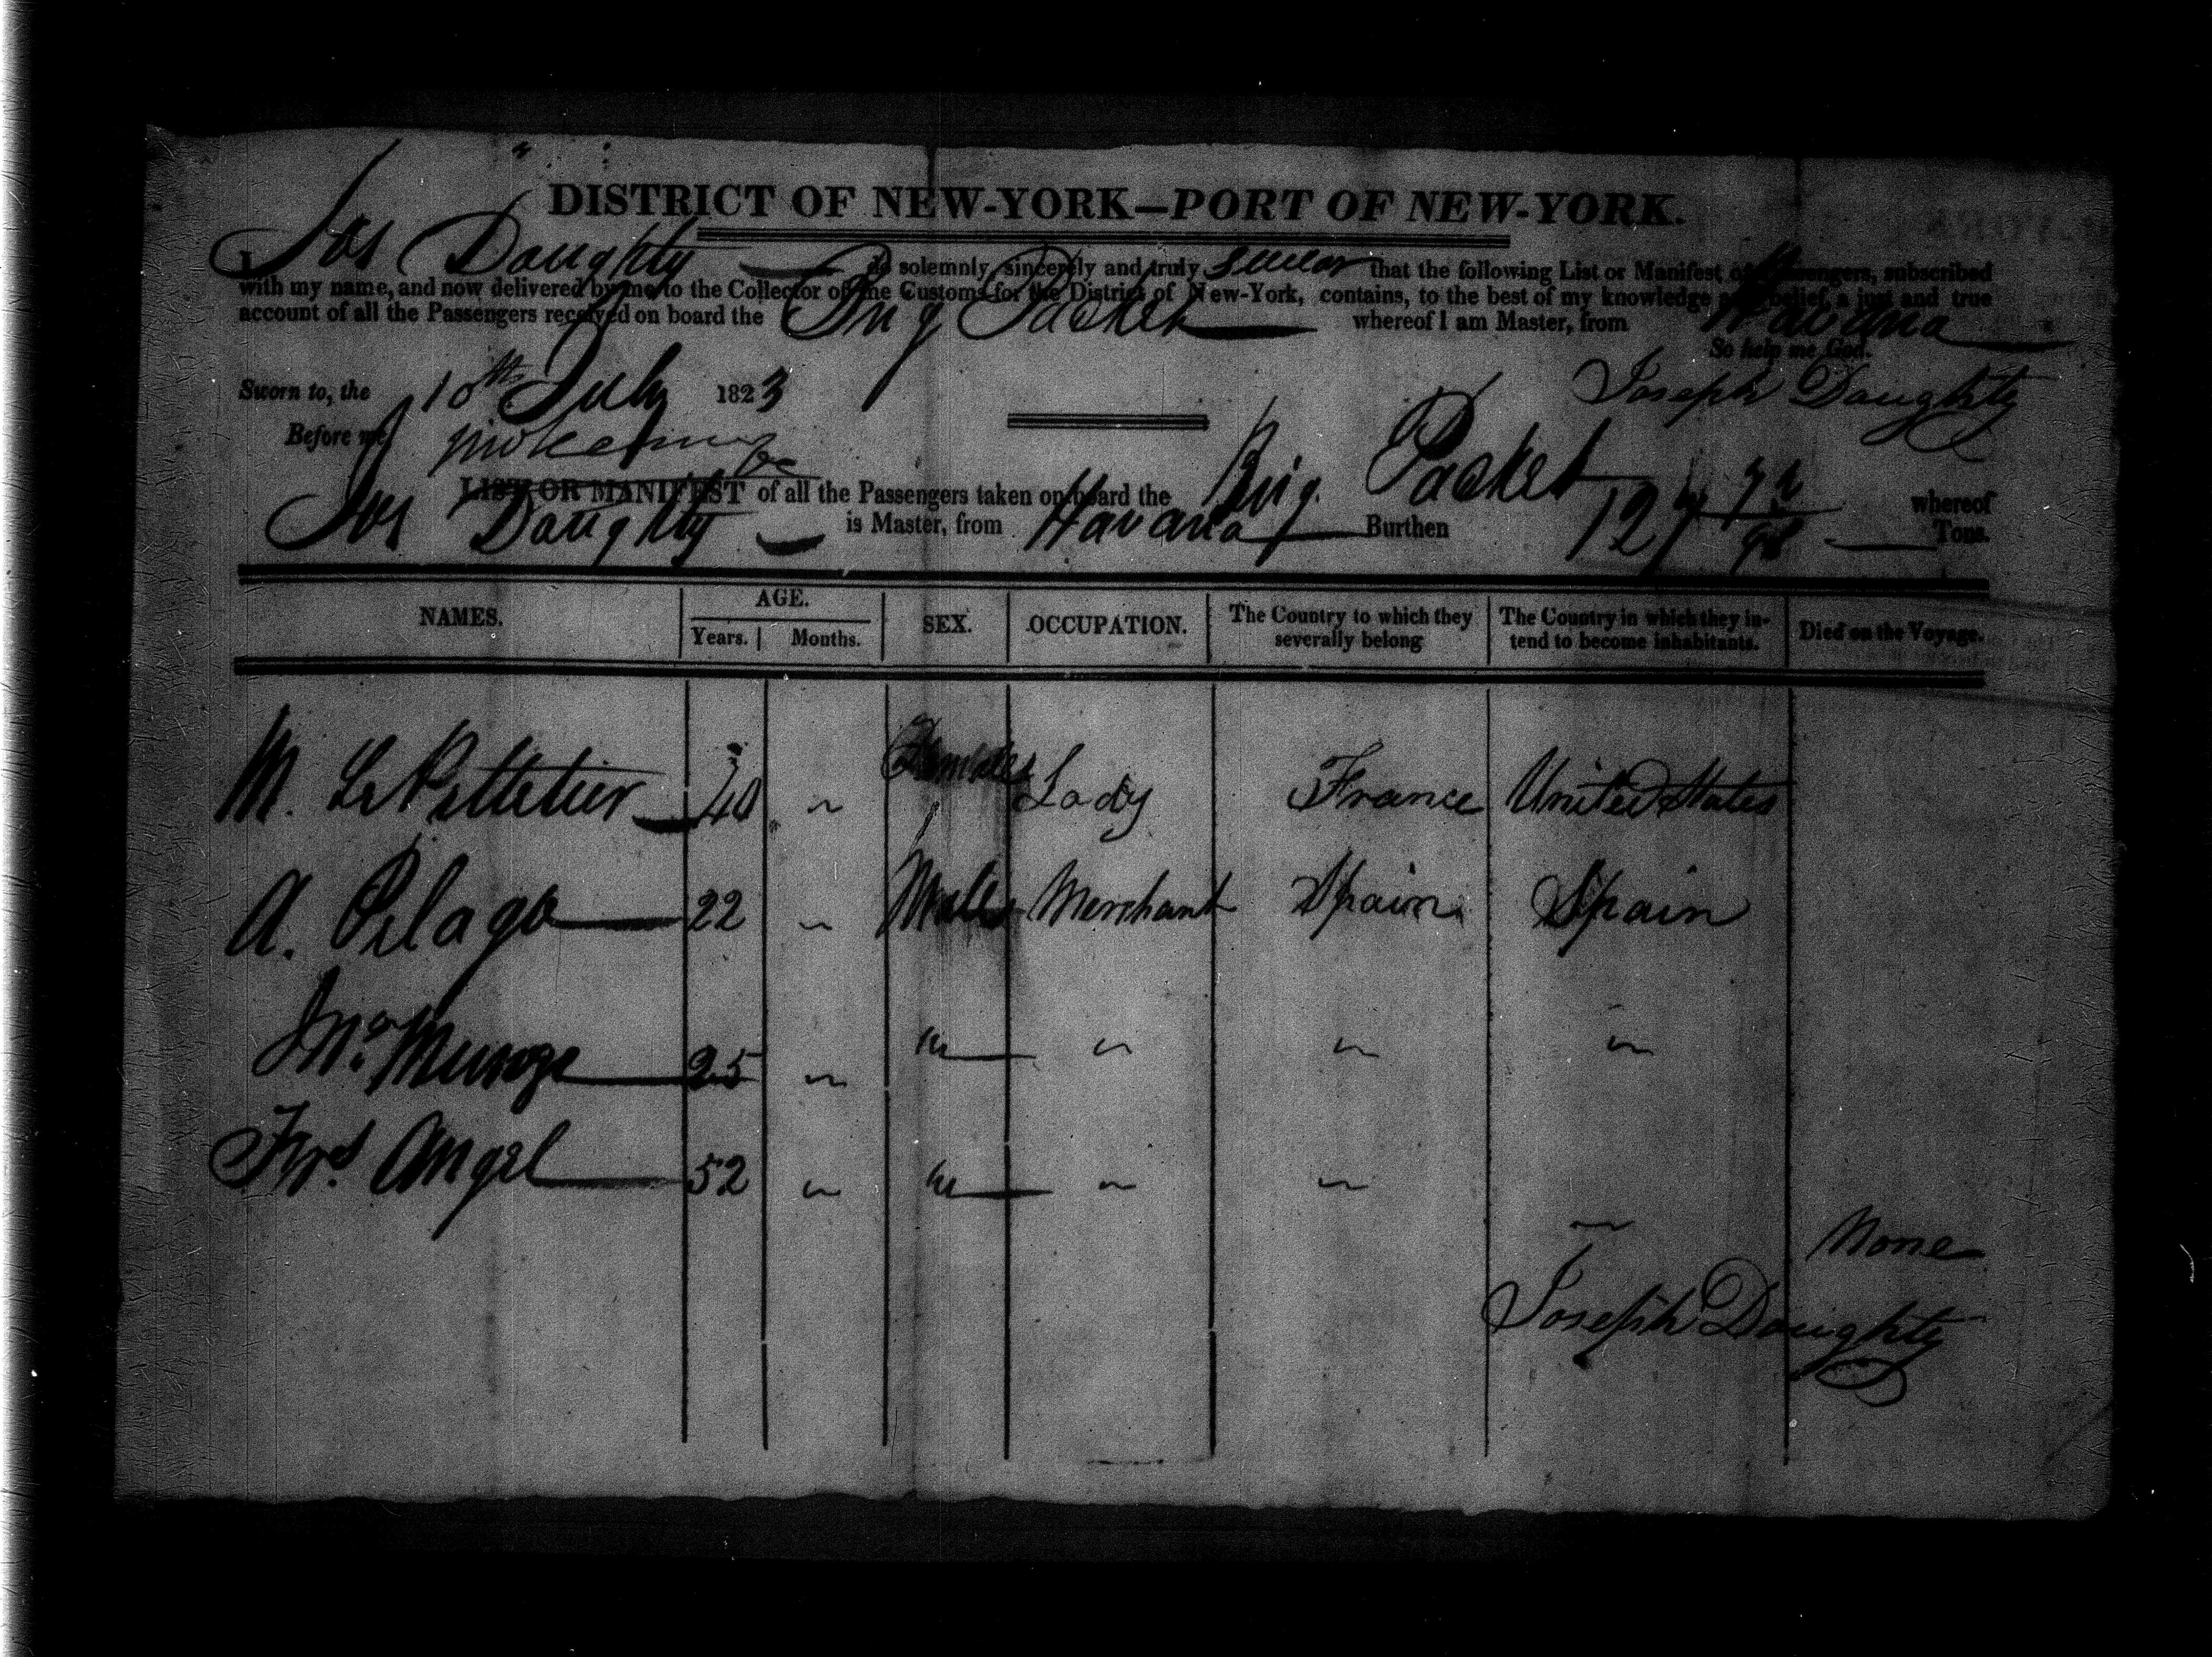 DISTRICT OF NEW-YORK—PORT OF NEW-YORK.
I, Jos Doughty do solemnly, sincerely and truly swear that the following List or Manifest of Passengers, subscribed
with my name, and now delivered by me to the Collector of the Customs for the District of New-York, contains, to the best of my knowledge and belief, a just and true
account of all the Passengers received on board the Brig Packet whereof I am Master, from Havana
So help me God.
Sworn to, the 10th July 1823 Joseph Doughty
Before me,
LIST OR MANIFEST of all the Passengers taken on board the Brig Packet whereof
Jos Doughty is Master, from Havana Burthen 127 Tons.
NAMES. AGE. SEX. OCCUPATION. The Country to which they severally belong The Country in which they intend to become inhabitants. Died on the Voyage.
Years. Months.
M. Le Pelletier 40 " Female Lady France United States
A. Pelago 22 " Male Merchant Spain Spain
Jno. 25 " " " " "
Angel 52 " " " " "
None
Joseph Doughty